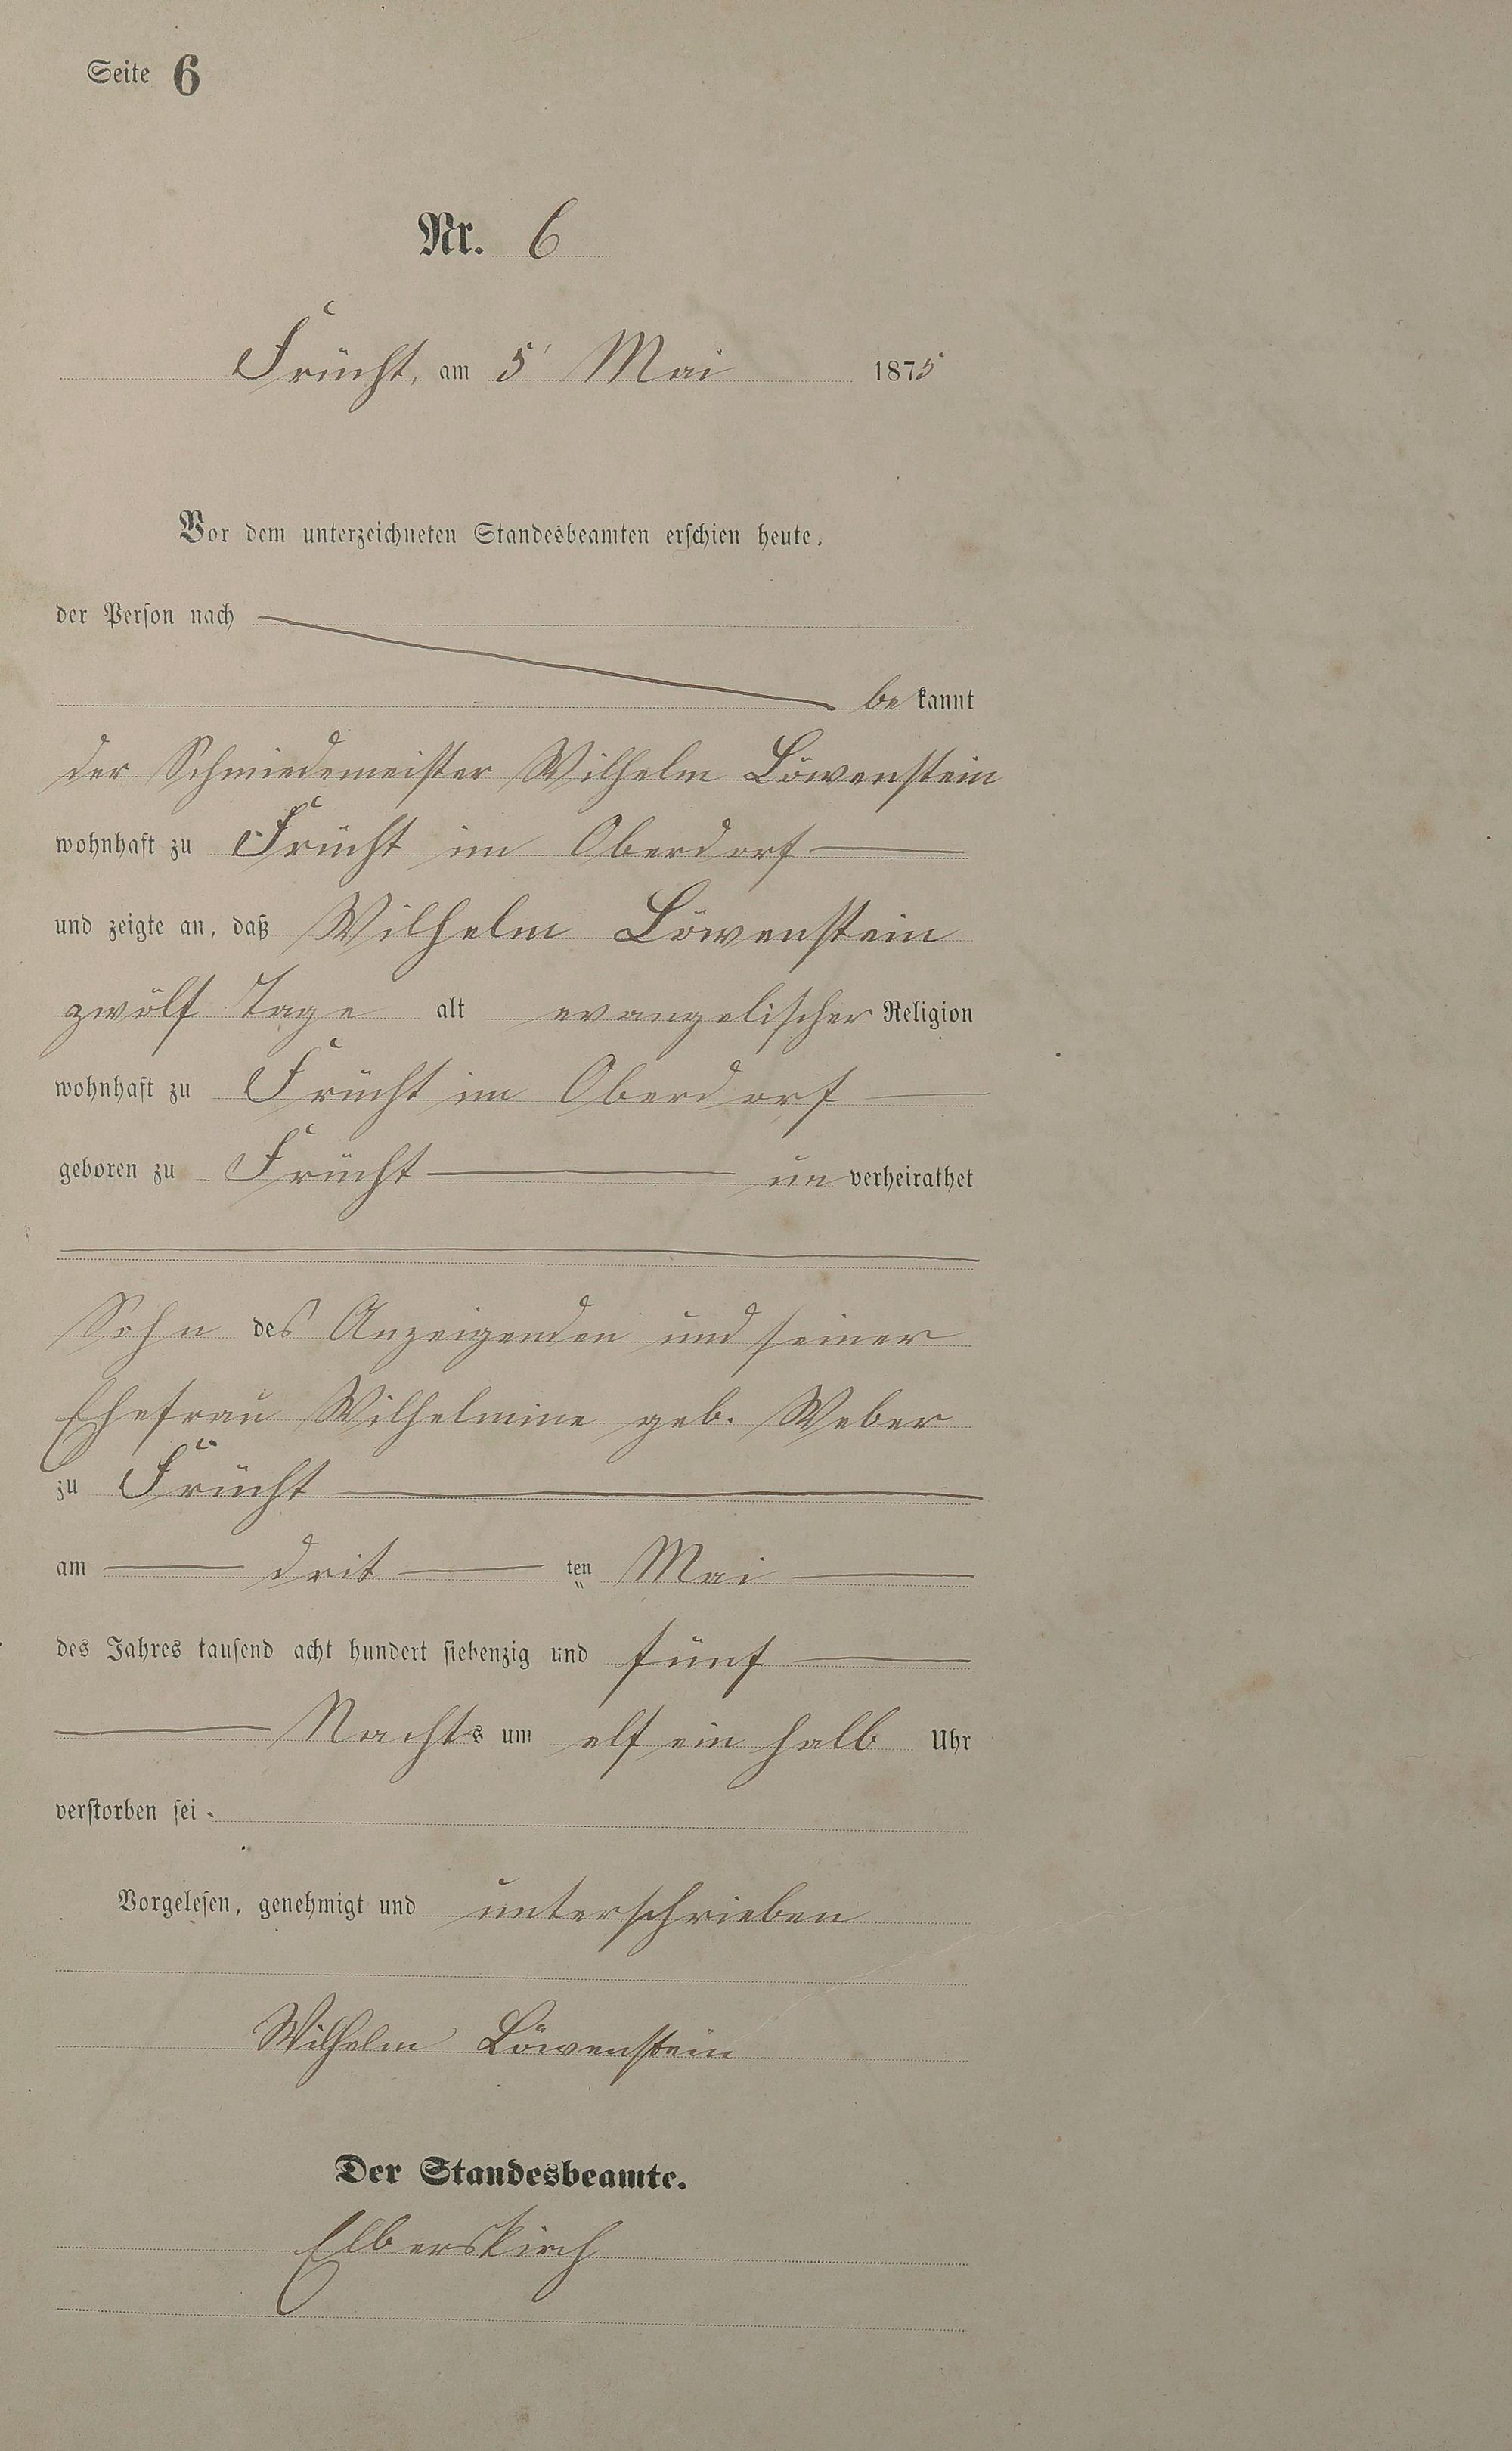 Seite 6
Nr. 6
Frücht, am 5' Mai 1875
Vor dem unterzeichneten Standesbeamten erschien heute,
der Person nach
bekannt
der Schmiedemeister Wilhelm Löwenstein
wohnhaft zu Frücht im Oberdorf
und zeigte an, daß Wilhelm Löwenstein
zwölf Tage alt evangelischer Religion
wohnhaft zu Frücht im Oberdorf
geboren zu Frücht un verheirathet
Sohn des Anzeigenden und seiner
Ehefrau Wilhelmine geb. Weber
zu Frücht
am drit ten Mai
des Jahres tausend acht hundert siebenzig und fünf
Nachts um elf ein halb Uhr
verstorben sei.
Vorgelesen, genehmigt und unterschrieben
Wilhelm Löwenstein
Der Standesbeamte.
Elberskirch